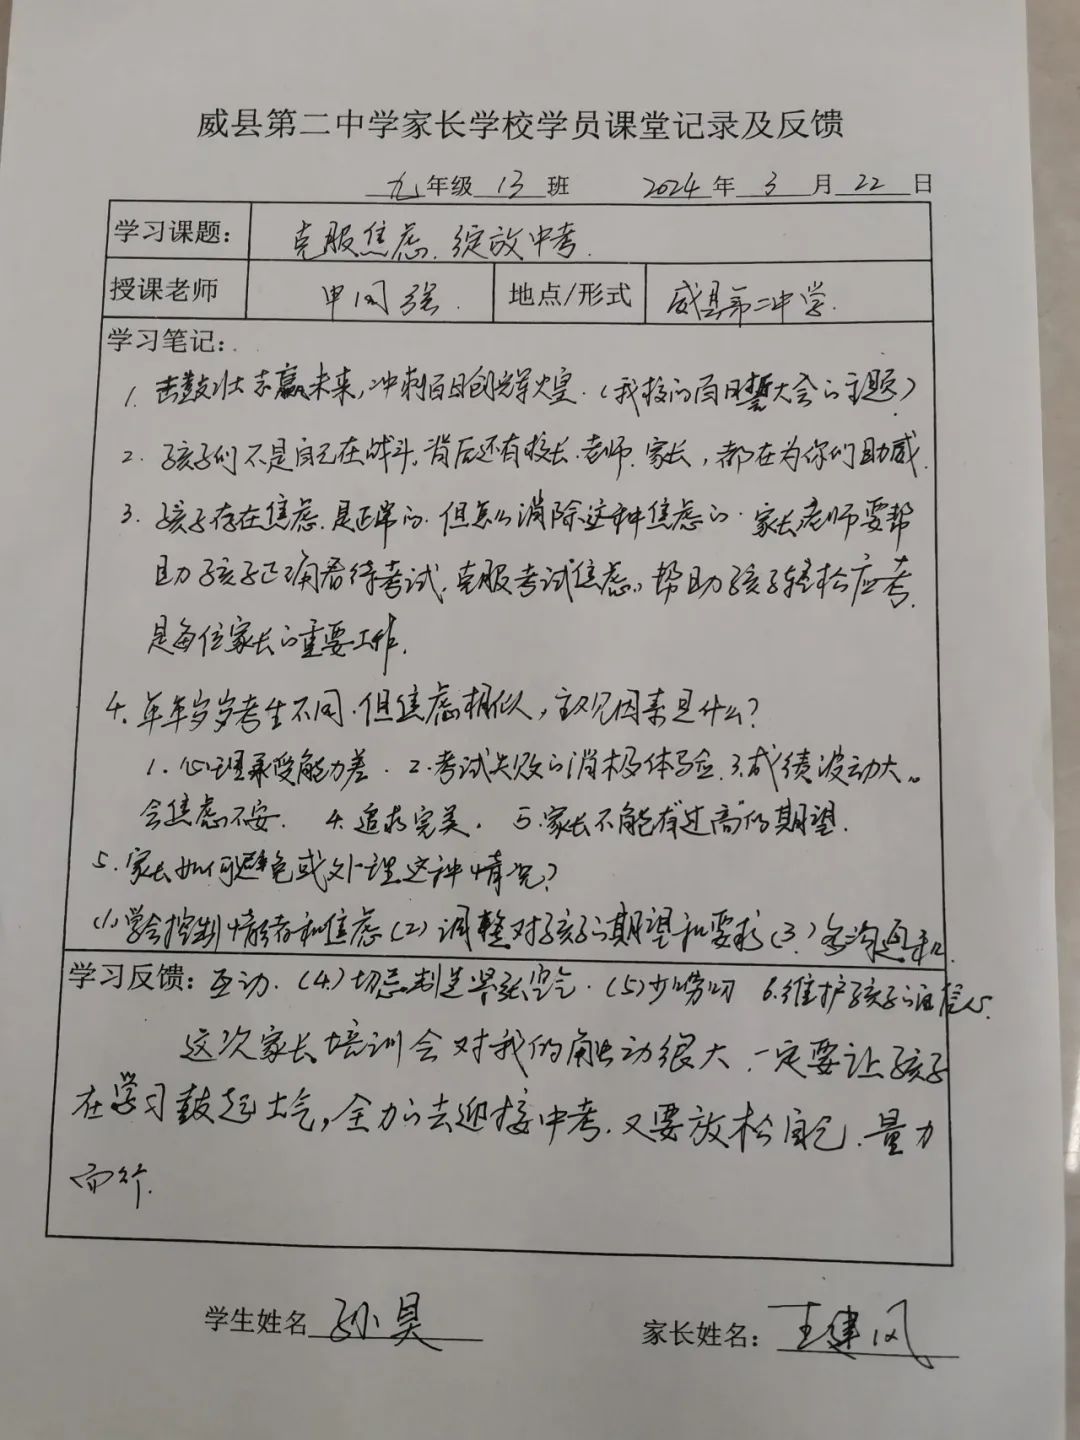 威县第二中学家长学校学员课堂记录及反馈
九年级 13 班 2024 年 3 月 22 日
学习课题: 克服焦虑、绽放中考.
授课老师 申国强. 地点/形式 威县第二中学.
学习笔记:
1. 击鼓壮志赢未来,冲刺百日创辉煌.(我校的百日誓大会的主题)
2. 孩子们不是自己在战斗,背后还有校长.老师.家长,都在为你们助威.
3. 孩子存在焦虑.是正常的.但怎么消除这种焦虑的.家长老师要帮
助孩子正确看待考试.克服考试焦虑。帮助孩子轻松应考.
是每位家长的重要工作.
4. 年年岁岁考生不同.但焦虑相似,主观因素是什么?
1.心理承受能力差. 2.考试失败的消极体验.3.成绩波动大。
会焦虑不安. 4.追求完美. 5.家长不能有过高的期望.
5.家长如何避免或处理这种情况?
(1)学会控制情绪和焦虑(2)调整对孩子的期望和要求(3)多沟通和
学习反馈: 互动.(4)切忌制造紧张空气.(5)少唠叨 6.维护孩子的自信心.
这次家长培训会对我的触动很大.一定要让孩子
在学习鼓起士气,全力的去迎接中考.又要放松自己.量力
而行.
学生姓名 孙昊 家长姓名: 王建风